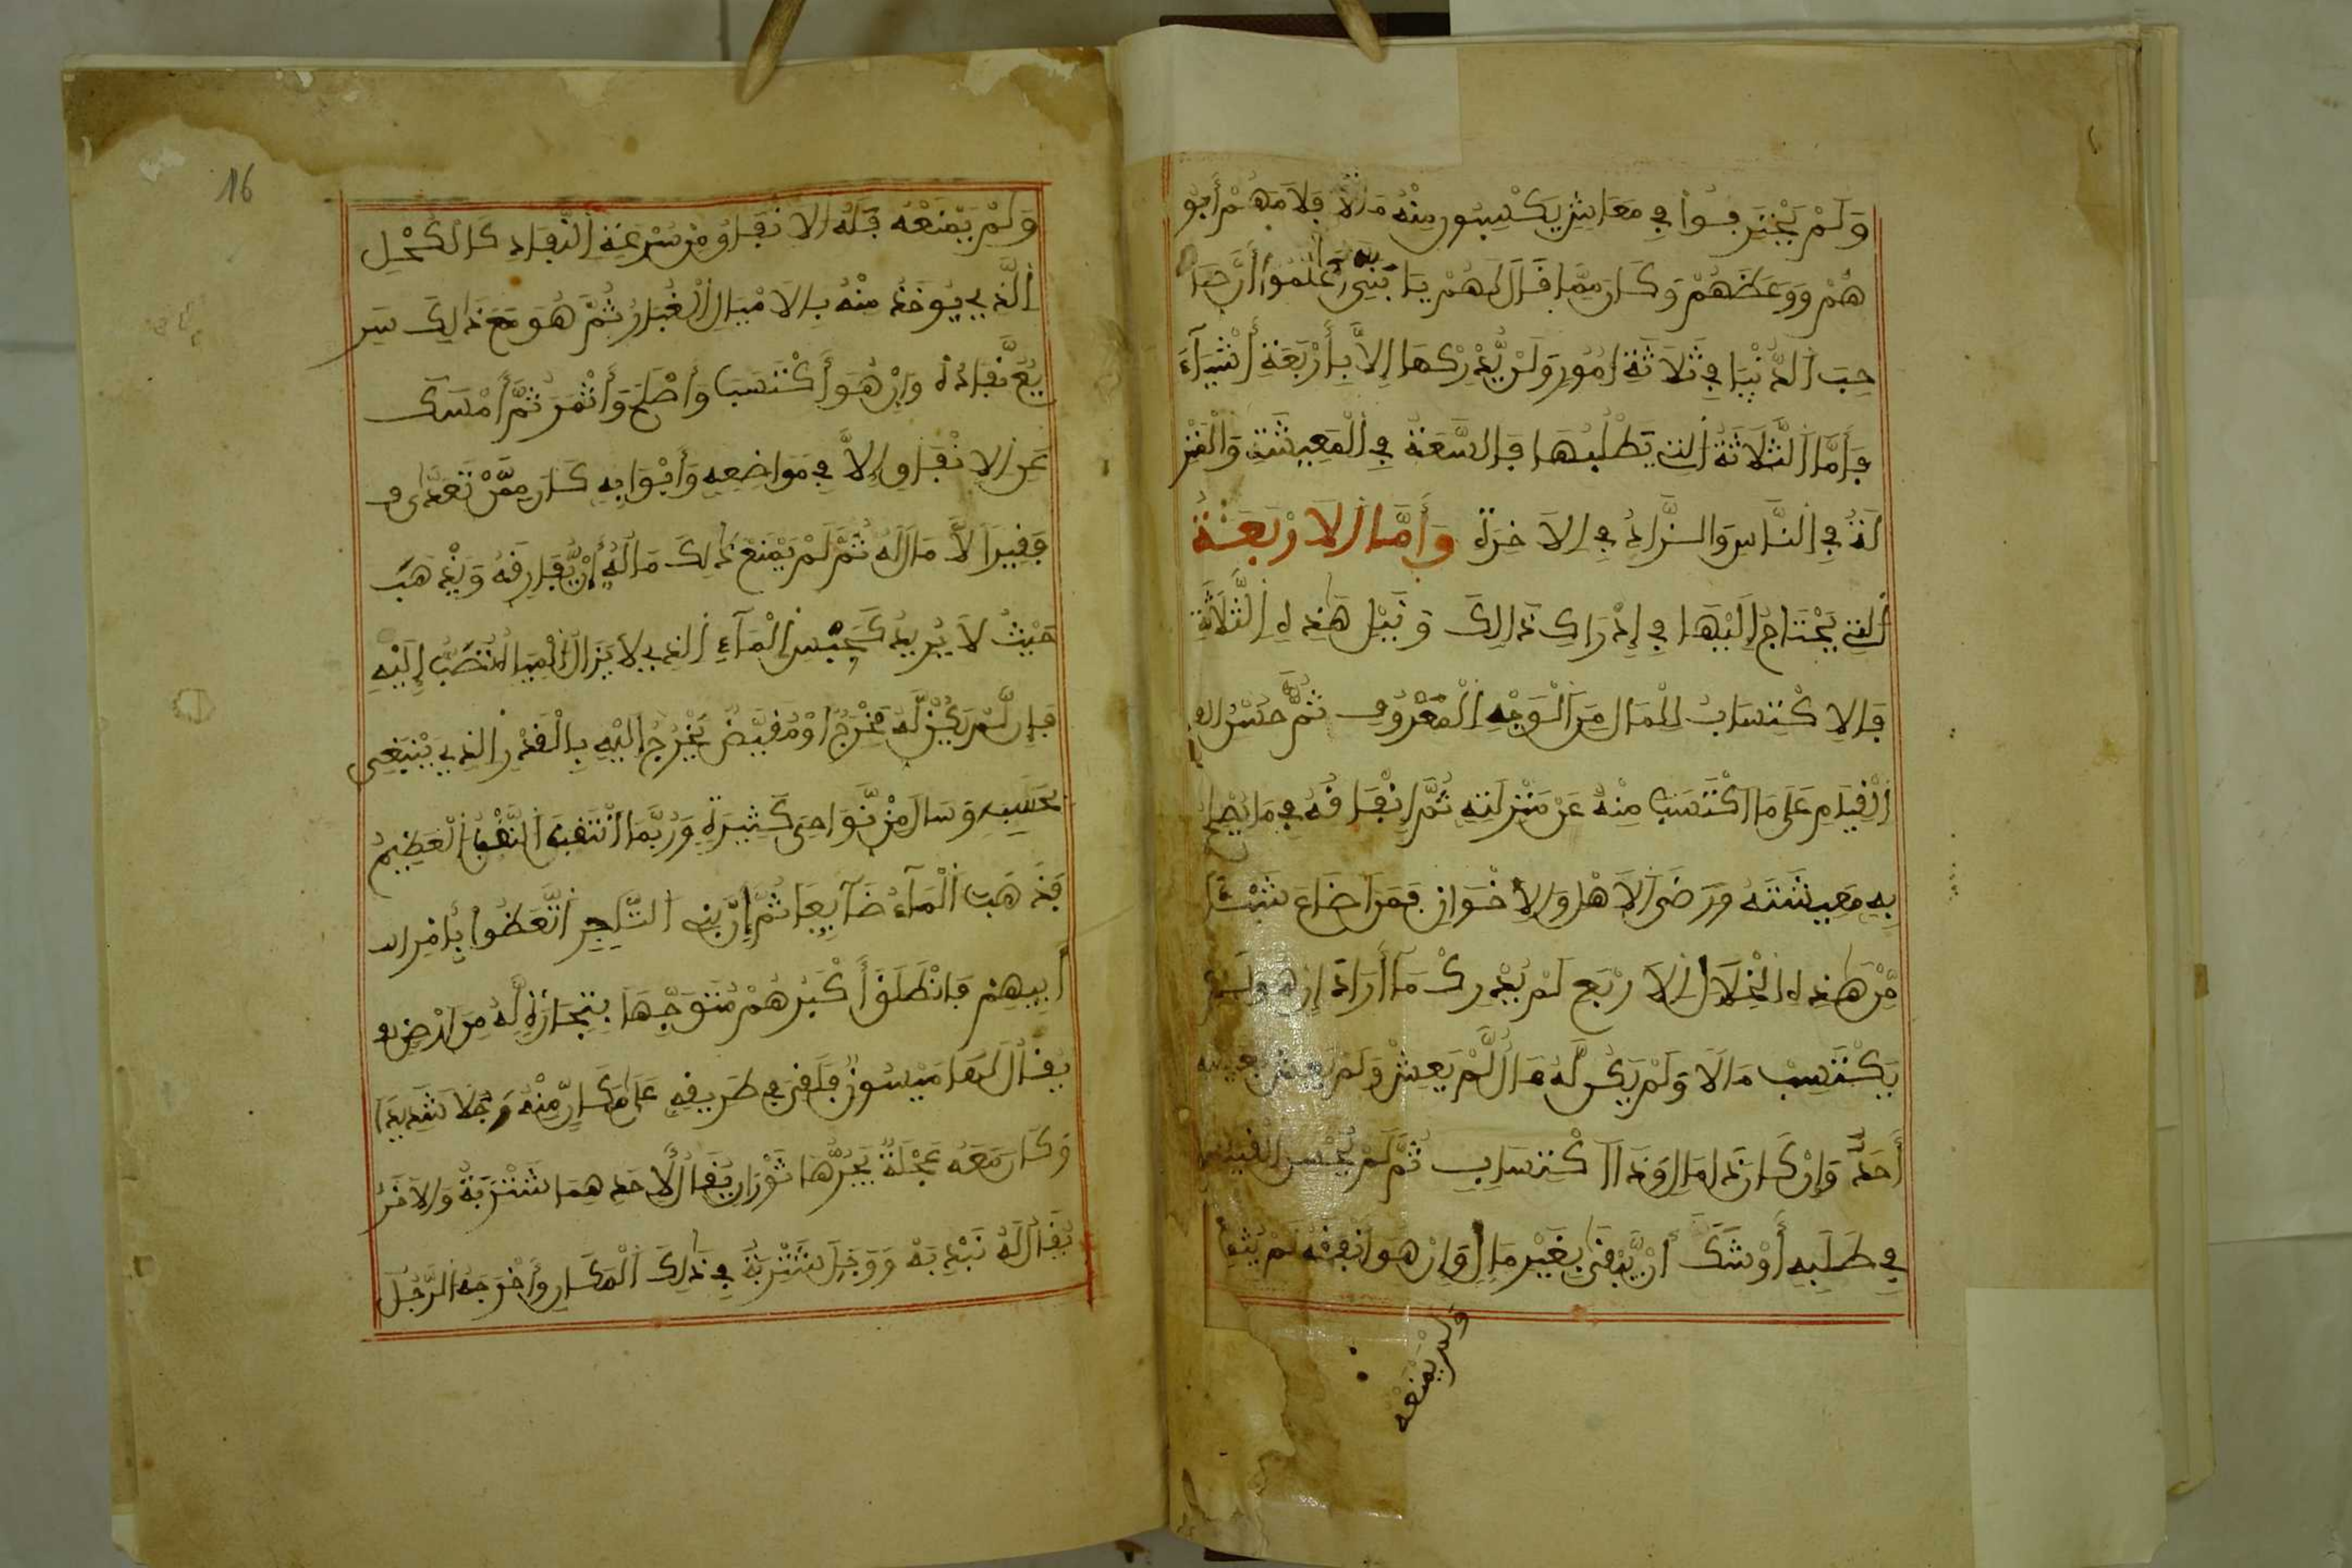 وَلَمْ يَحْتَرِفُواْ فِي مَعَاشٍ يَكْسِبُونَ مِنْهُ مَالًا فَلَامَهُمْ أَبُو
هُمْ وَوَعَظَهُمْ وَكَانَ مِمَّا قَالَ لَهُمْ يَا بَنِيَّ اعْلَمُواْ أَنَّ صَا
حِبَ الدُّنْيَا فِي ثَلَاثَةِ امُورٍ وَلَنْ يُّدْرِكهَا إِلاَّ بِأَرْبَعَةِ أَشْيَآءَ
فَأَمَّا الثَّلَاثَةُ التِي يَطْلُبُهَا فَالسَّعَةُ فِي الْمَعِيشَةِ وَالْمَنْزِ
لَةُ فِي النَّاسِ وَالزَّادُ فِي الاَخِرَةِ وَأَمَّا الَارْبَعَةُ
التِي يَحْتَاجُ إِلَيْهَا فِي إِدْرَاكِ ذَالِكَ وَنَيْلِ هَٰذِهِ الثَّلَاثَةِ
فَالاِكْتِسَابُ لِلْمَالِ مِنَ الْوَجْهِ الْمَعْرُوفِ ثُمَّ حُسْنُ
الْقِيَامِ عَلَى مَا اكْتَسَبَ مِنْهُ عَنْ مَنْزِلَتِهِ ثُمَّ إِنْفَاقُهُ فِي مَا يُصْلِحُ
بِهِ مَعِيشَتَهُ وَرَضَى الاَهْلِ وَالاِخْوَانِ فَمَنَ اضَاعَ شَيْئًا
مِّنْ هَٰذِهِ الْخِلَالِ الاَرْبَعِ لَمْ يُدْرِكْ مَآ أَرَادَ إِنْ هُوَ لَمْ
يَكْتَسِبْ مَالًا وَلَمْ يَكُن لَّهُ مَالٌ لَّمْ يَعِشْ وَلَمْ يَعِشْ
أَحَدٌ وَإِنْ كَانَ ذَا مَالٍ وَذَا اكْتِسَابٍ ثُمَّ لَمْ يُحْسِنِ الْقِيَامَ
فِي طَلَبِهِ أَوْشَكَ أَنْ يَّبْقَىٰ بِغَيْرِ مَالٍ وَإِنْ هُوَ أَنْفَقَهُ لَمْ
وَلَمْ يَمْنَعْهُ
16
وَلَمْ يَمْنَعْهُ قِلَّةُ الاِنْفَاقِ مِنْ سُرْعَةِ النَّفَادِ كَالْكُحْلِ
الَّذِي يُوخَذُ مِنْهُ بِالاَمْيَالِ الْغُبَارُ ثُمَّ هُوَ مَعَ ذَالِكَ سَرِ
يعٌ نَّفَادُهُ وَإِنْ هُوَ أَكْتَسَبَ وَأَصْلَحَ وَأَثْمَرَ ثُمَّ أَمْسَكَ
عَنِ الاِنْفَاقِ إِلاَّ فِي مَوَاضِعِهِ وَأَبْوَابِهِ كَانَ مِمَّنْ
فَقِيرًا لاَّ مَالَ لَهُ ثُمَّ لَمْ يَمْنَعْ ذَالِكَ مَالَهُ أَنْ يُّفَارِقَهُ وَيَذْهَبَ
حَيْثُ لاَ يُرِيدُ كَحَبْسِ الْمَآءِ الذِي لاَ يَزَالُ الْمِيَاهُ تُصَبُّ إِلَيْهِ
فَإِن لَّمْ يَكُنْ لَّهُ مَخْرَجٌ اوْ مُفَيَّضٌ يَخْرُجُ إِلَيْهِ بِالْقَدْرِ الذِي يَنْبَغِي
وَسَالَ مِنْ نَّوَاحِي كَثِيرَةٍ وَرُبَّمَا انْثَقَبَ النَّقْبَ الْعَظِيمَ
فَذَهَبَ الْمَآءُ ضَآيِعًا ثُمَّ إِنَّ بَنِي التَّاجِرِ اتَّعَظُواْ بِأَمْرِ
أَبِيهِمْ فَانْطَلَقَ أَكْبَرُهُمْ مُتَوَجِّهًا بِتِجَارَةٍ لَّهُ مِنَ ارْضٍ
يُقَالُ لَهَا مَيْسُونٌ فَلَقِيَ فِي طَرِيقِهِ عَلَى مَكَانٍ مِّنْهُ وَحَلًا شَدِيدًا
وَكَانَ مَعَهُ عَجْلَةٌ يَجُرُّهَا ثَوْرَانِ يُقَالُ لِأَحَدِهِمَا شَنْزَبَةُ وَالاَخَرُ
يُقَالُ لَهُ بَنْدَبَهْ وَوَحِلَ شَنْزَبَةُ فِي ذَٰلِكَ الْمَكَانِ وَأَخْرَجَهُ الرَّجُلُ